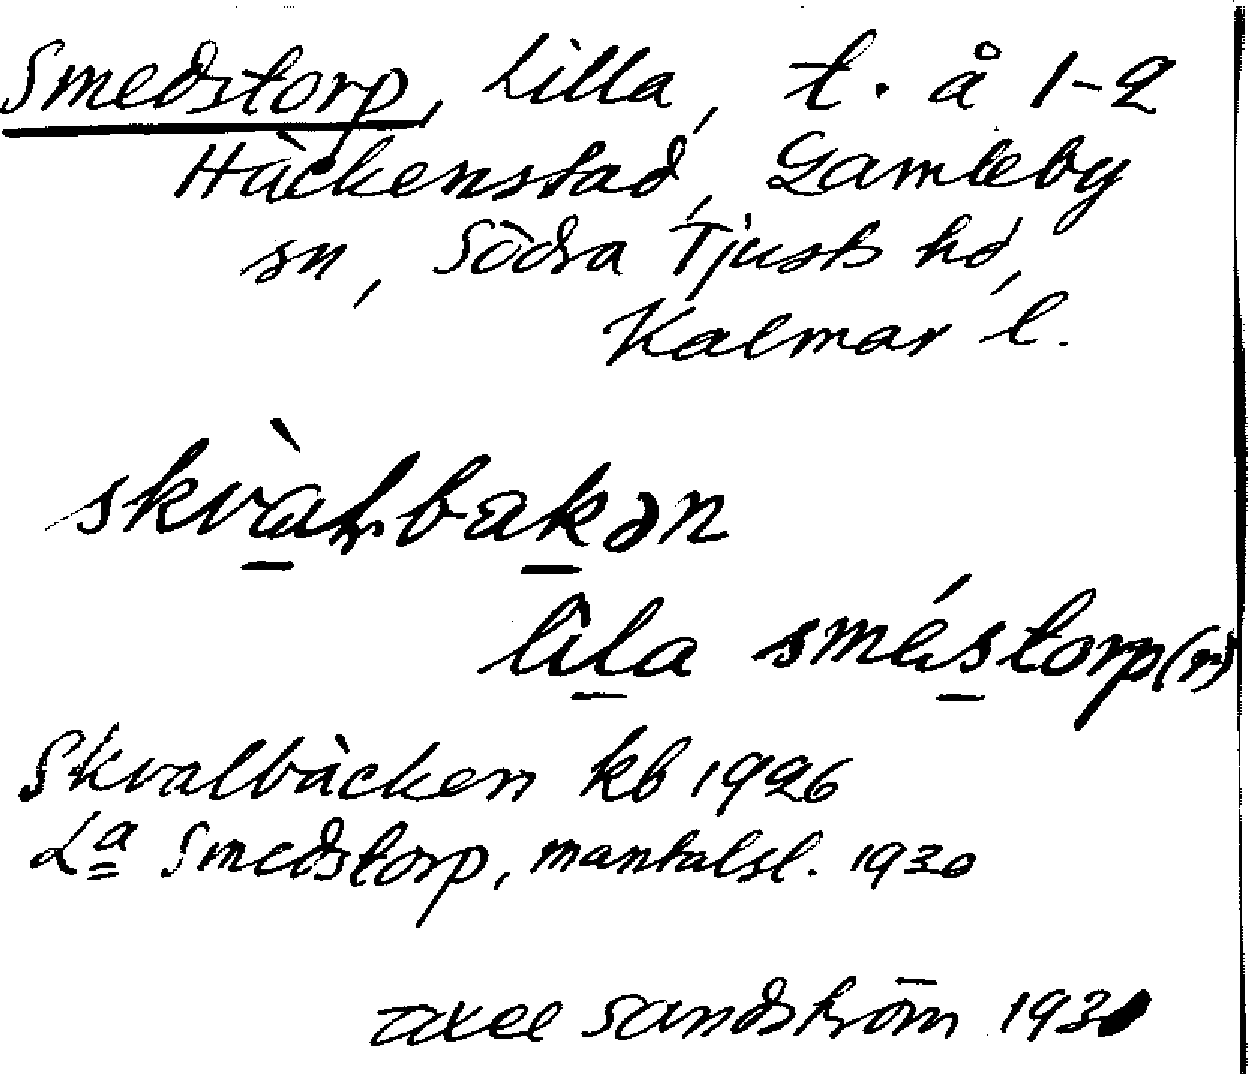 Smedstorp, Lilla, t. å 1-2
Häckenstad, Gamleby
sn, Södra Tjusts hd,
Kalmar l.
skvàɫbakən
lila sméstorp(n)
Skvalbäcken kb 1926
La Smedstorp, mantalsl. 1930
Axel Sandström